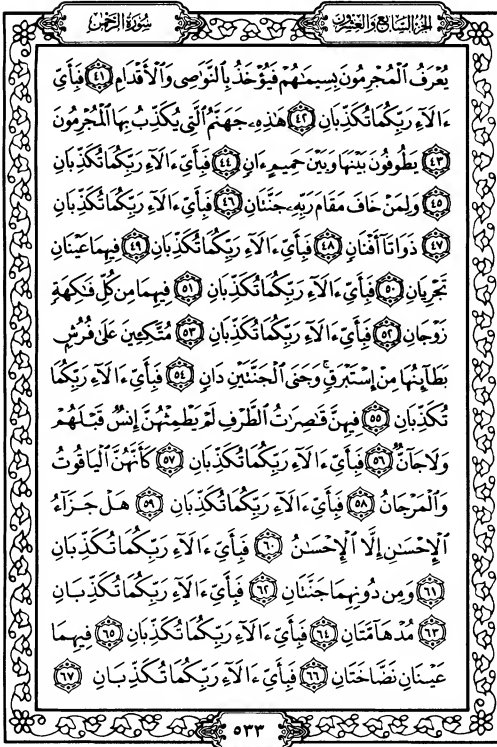 الجزء السابع والعشرون
سورة الرحمن
يُعْرَفُ الْمُجْرِمُونَ بِسِيمَاهُمْ فَيُؤْخَذُ بِالنَّوَاصِي وَالْأَقْدَامِ ٤١ فَبِأَيِّ
ءَالَاءِ رَبِّكُمَا تُكَذِّبَانِ ٤٢ هَٰذِهِ جَهَنَّمُ الَّتِي يُكَذِّبُ بِهَا الْمُجْرِمُونَ
٤٣ يَطُوفُونَ بَيْنَهَا وَبَيْنَ حَمِيمٍ ءَانٍ ٤٤ فَبِأَيِّ ءَالَاءِ رَبِّكُمَا تُكَذِّبَانِ
٤٥ وَلِمَنْ خَافَ مَقَامَ رَبِّهِ جَنَّتَانِ ٤٦ فَبِأَيِّ ءَالَاءِ رَبِّكُمَا تُكَذِّبَانِ
٤٧ ذَوَاتَا أَفْنَانٍ ٤٨ فَبِأَيِّ ءَالَاءِ رَبِّكُمَا تُكَذِّبَانِ ٤٩ فِيهِمَا عَيْنَانِ
تَجْرِيَانِ ٥٠ فَبِأَيِّ ءَالَاءِ رَبِّكُمَا تُكَذِّبَانِ ٥١ فِيهِمَا مِن كُلِّ فَٰكِهَةٍ
زَوْجَانِ ٥٢ فَبِأَيِّ ءَالَاءِ رَبِّكُمَا تُكَذِّبَانِ ٥٣ مُتَّكِئِينَ عَلَىٰ فُرُشٍ
بَطَائِنُهَا مِنْ إِسْتَبْرَقٍ ۚ وَجَنَى الْجَنَّتَيْنِ دَانٍ ٥٤ فَبِأَيِّ ءَالَاءِ رَبِّكُمَا
تُكَذِّبَانِ ٥٥ فِيهِنَّ قَٰصِرَٰتُ الطَّرْفِ لَمْ يَطْمِثْهُنَّ إِنسٌ قَبْلَهُمْ
وَلَا جَانٌّ ٥٦ فَبِأَيِّ ءَالَاءِ رَبِّكُمَا تُكَذِّبَانِ ٥٧ كَأَنَّهُنَّ الْيَاقُوتُ
وَالْمَرْجَانُ ٥٨ فَبِأَيِّ ءَالَاءِ رَبِّكُمَا تُكَذِّبَانِ ٥٩ هَلْ جَزَاءُ
الْإِحْسَٰنِ إِلَّا الْإِحْسَٰنُ ٦٠ فَبِأَيِّ ءَالَاءِ رَبِّكُمَا تُكَذِّبَانِ
٦١ وَمِن دُونِهِمَا جَنَّتَانِ ٦٢ فَبِأَيِّ ءَالَاءِ رَبِّكُمَا تُكَذِّبَانِ
٦٣ مُدْهَامَّتَانِ ٦٤ فَبِأَيِّ ءَالَاءِ رَبِّكُمَا تُكَذِّبَانِ ٦٥ فِيهِمَا
عَيْنَانِ نَضَّاخَتَانِ ٦٦ فَبِأَيِّ ءَالَاءِ رَبِّكُمَا تُكَذِّبَانِ ٦٧
٥٣٣